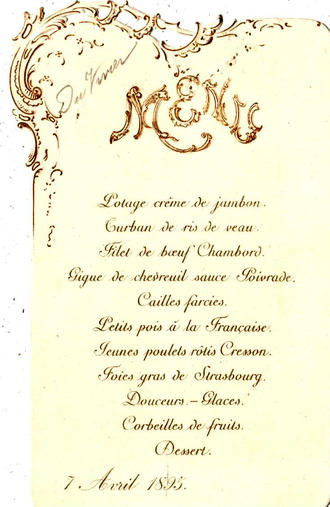 Du Vivier
MENU
Potage crème de jambon.
Turban de ris de veau.
Filet de bœuf Chambord.
Gigue de chevreuil sauce Poivrade.
Cailles farcies.
Petits pois à la Française.
Jeunes poulets rôtis Cresson.
Foies gras de Strasbourg.
Douceurs. - Glaces.
Corbeilles de fruits.
Dessert.
7 Avril 1895.